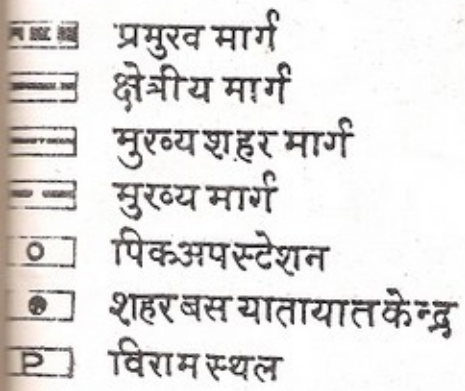 प्रमुख मार्ग
क्षेत्रीय मार्ग
मुख्य शहर मार्ग
मुख्य मार्ग
पिकअप स्टेशन
शहर बस यातायात केन्द्र
P विराम स्थल